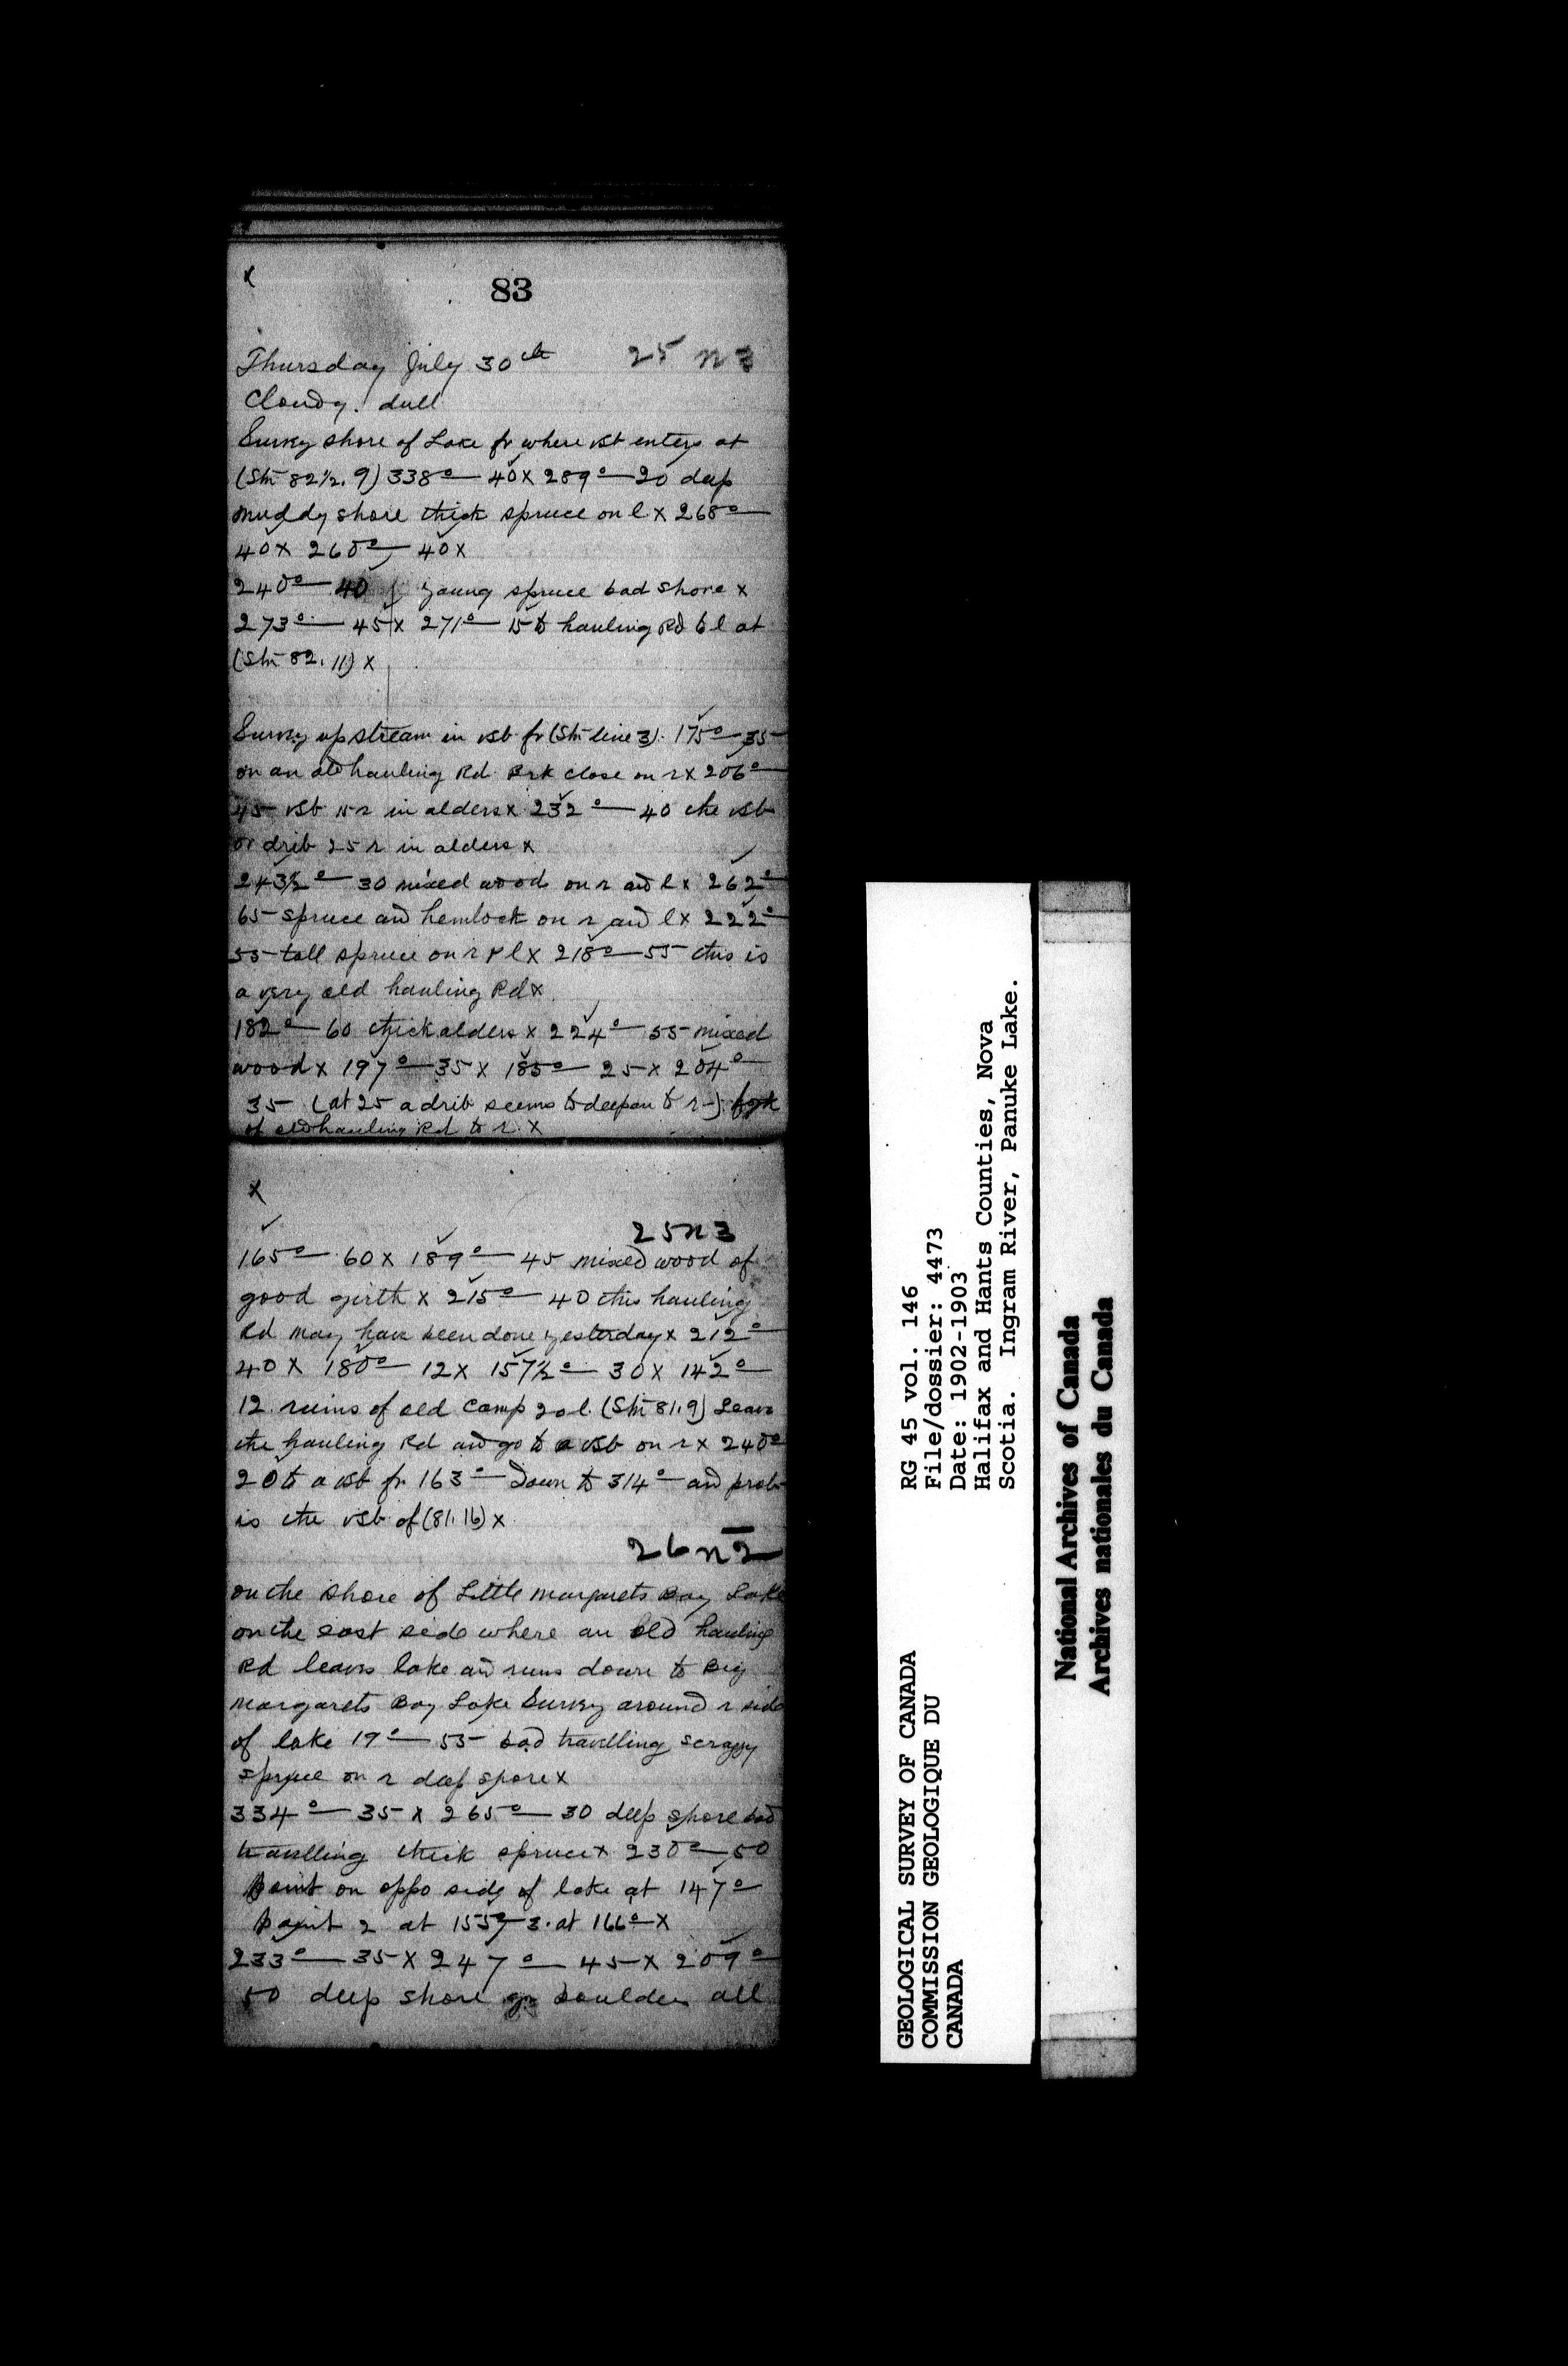 x
83
Thursday July 30th 25 n 3
Cloudy. dull
Survey shore of Lake fr where vsb enters at
(Stn 82½.9) 338° — 40 x 289° — 20 deep
muddy shore thick spruce on l x 268° —
40 x 260° — 40 x
240° — 40 young spruce bad shore x
273° — 45 x 271° — 15 to hauling Rd to l at
(Stn 82.11) x
Survey upstream in vsb fr (Stn line 3). 175° — 35
on an old hauling Rd Brk close on r x 206° —
45 vsb 15 r in alders x 232° — 40 the vsb
or drib 25 r in alders x
243½° — 30 mixed wood on r and l x 262° —
65 spruce and hemlock on r and l x 222° —
55 tall spruce on r & l x 218° — 55 this is
a very old hauling Rd x
182° — 60 thick alders x 224° — 55 mixed
wood x 197° — 35 x 185° — 25 x 204° —
35 (at 25 a drib seems to deepen to r) fork
of old hauling Rd to r. x
x
25 n 3
165° — 60 x 189° — 45 mixed wood of
good girth x 215° — 40 this hauling
Rd may have been done yesterday x 212° —
40 x 180° — 12 x 157½° — 30 x 142° —
12 ruins of old camp 20 l. (Stn 81.9) Leave
the hauling Rd and go to a vsb on r x 240° —
20 to a vsb fr 163° — down to 314° — and prob
is the vsb of (81.16) x
26 n 2
on the shore of Little Margarets Bay Lake
on the east side where an old hauling
Rd leaves lake and runs down to Big
Margarets Bay Lake Survey around r side
of lake 19° — 55 bad travelling scraggy
spruce on r deep shore x
334° — 35 x 265° — 30 deep shore bad
travelling thick spruce x 230° — 50
Point on oppo side of lake at 147° —
Point 2 at 155° — 3. at 166° — x
233° — 35 x 247° — 45 x 209° —
50 deep shore gr boulders all
GEOLOGICAL SURVEY OF CANADA
COMMISSION GEOLOGIQUE DU
CANADA
RG 45 vol. 146
File/dossier: 4473
Date: 1902-1903
Halifax and Hants Counties, Nova
Scotia. Ingram River, Panuke Lake.
National Archives of Canada
Archives nationales du Canada